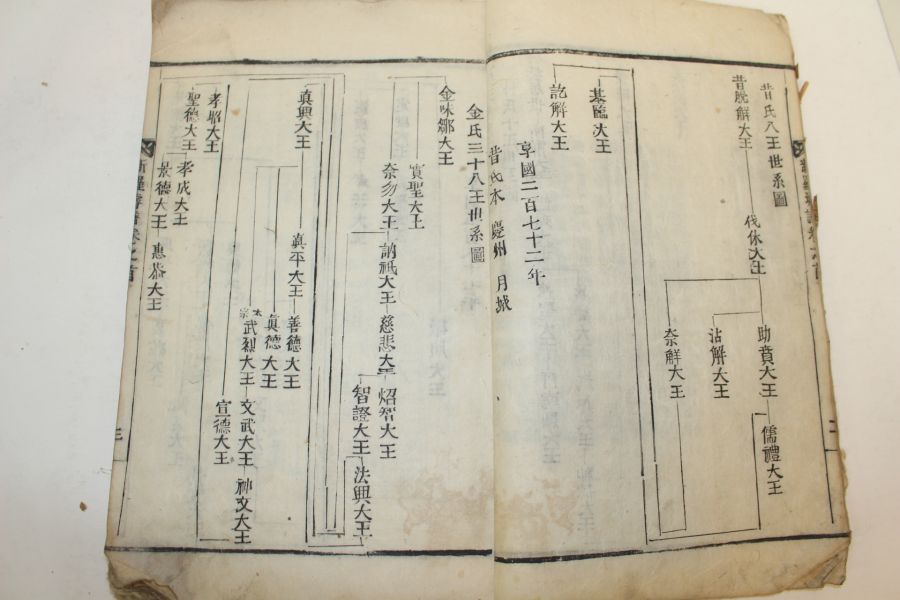 昔氏八王世系圖
昔脫解大王
伐休大王
助賁大王
儒禮大王
沾解大王
奈解大王
基臨大王
訖解大王
享國二百七十二年
昔氏本慶州月城
金氏三十八王世系圖
金味鄒大王
實聖大王
奈勿大王
訥祗大王
慈悲大王
炤智大王
智證大王
法興大王
真興大王
真平大王
善德大王
真德大王
太宗武烈大王
文武大王
神文大王
宣德大王
孝昭大王
聖德大王
孝成大王
景德大王
惠恭大王
二
三